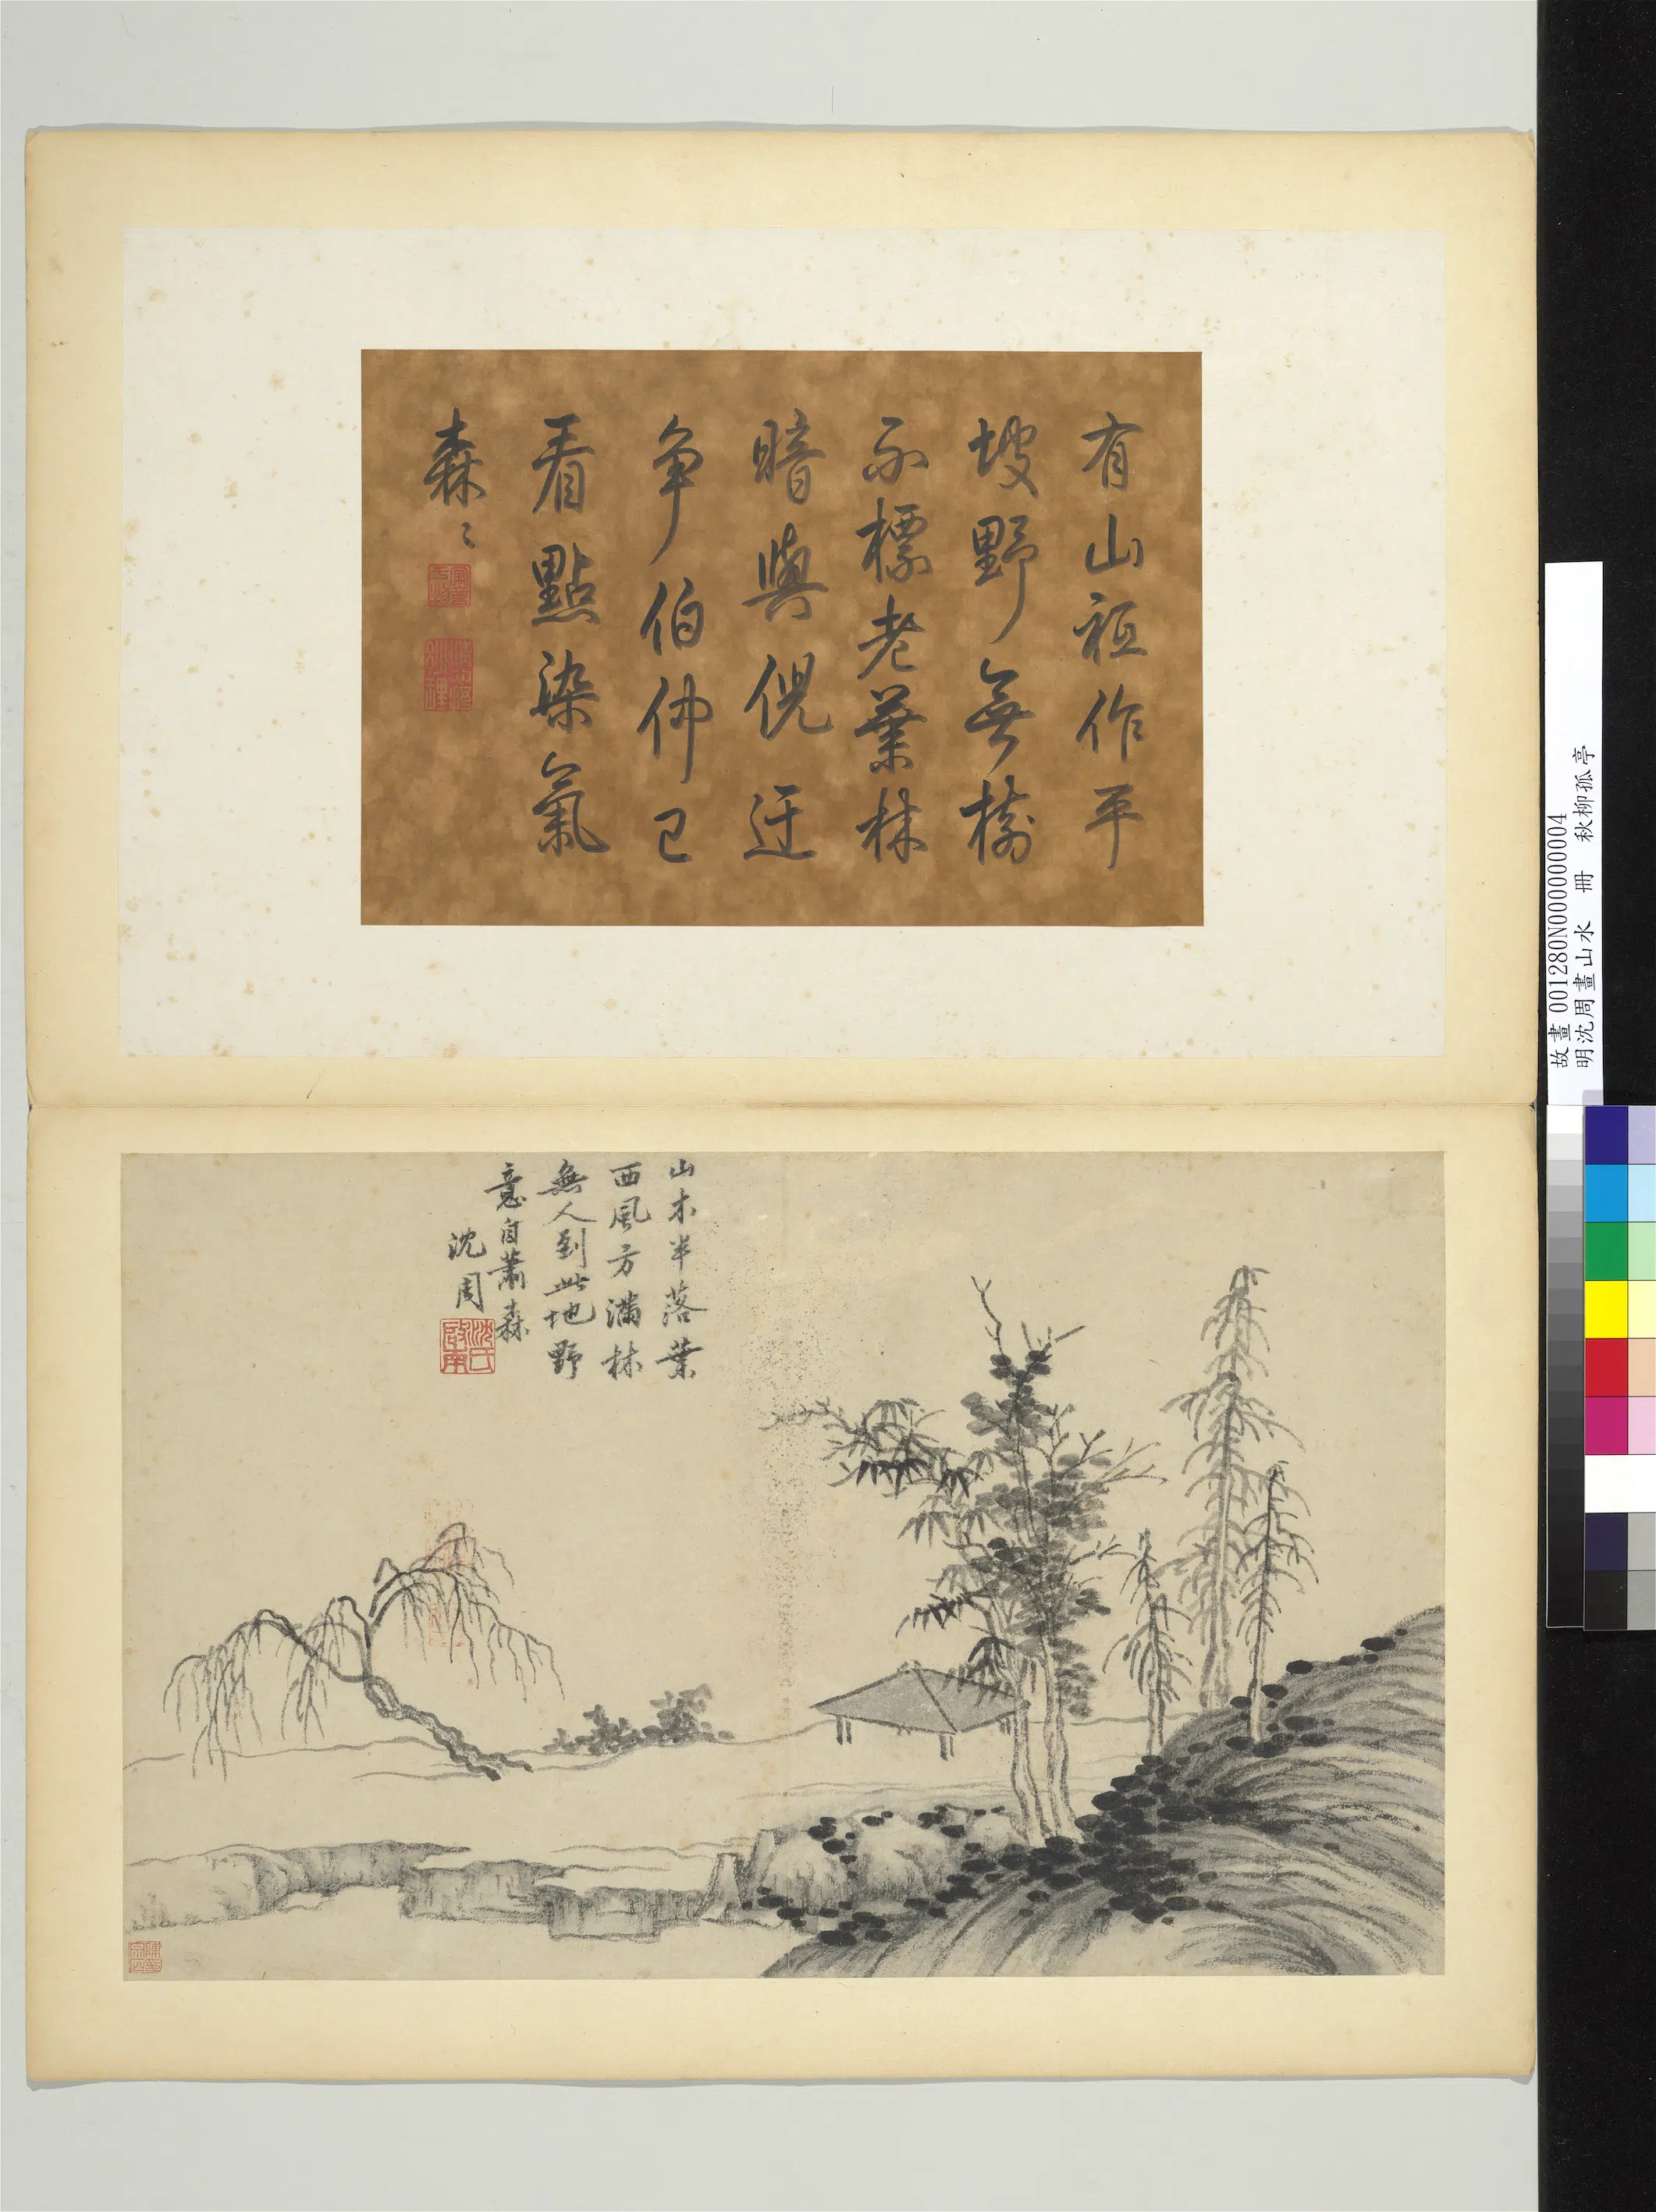 有山祗作平
坡野無樹
不標老葉林
暗與倪迂
爭伯仲已
看點染氣
森〻
山木半落葉
西風方滿林
無人到此地野
意自蕭森
沈周
沈氏啟南
故畫 001280N000000004
明沈周畫山水 冊 秋柳孤亭